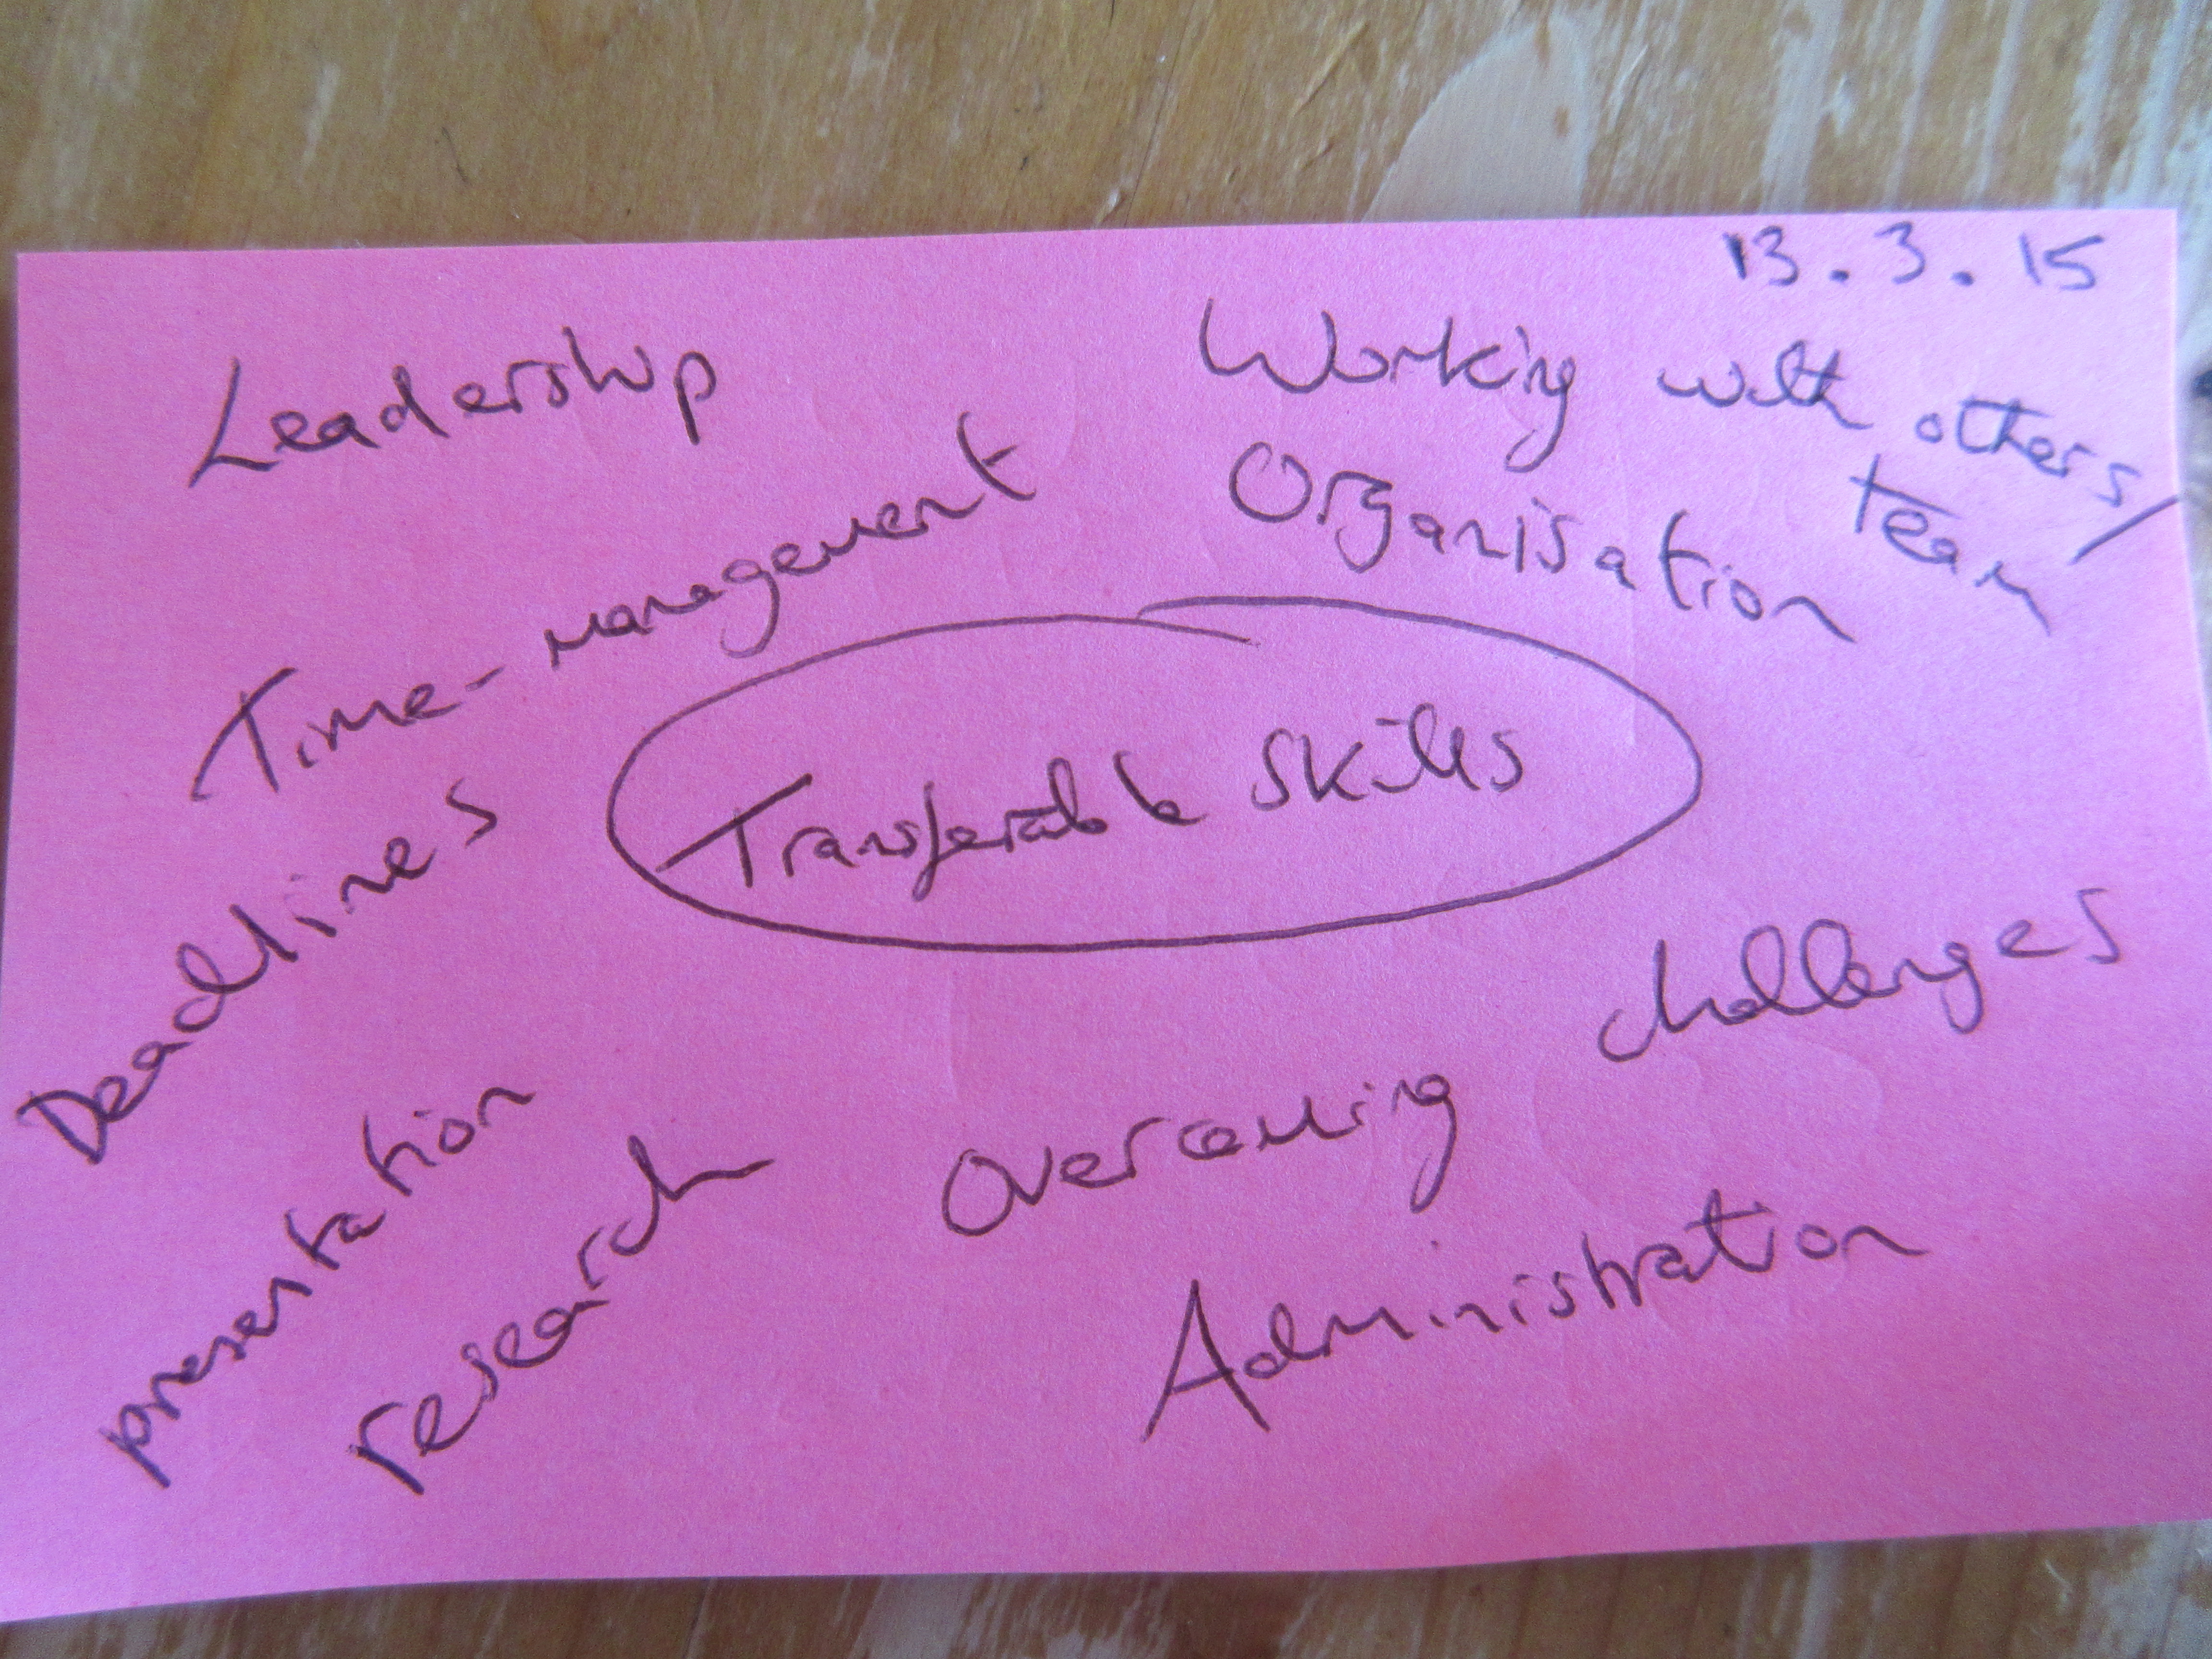 13.3.15
Leadership
Working with others/
team
Time-management
Organisation
Transferable skills
Deadlines
Overcoming challenges
presentation
research
Administration